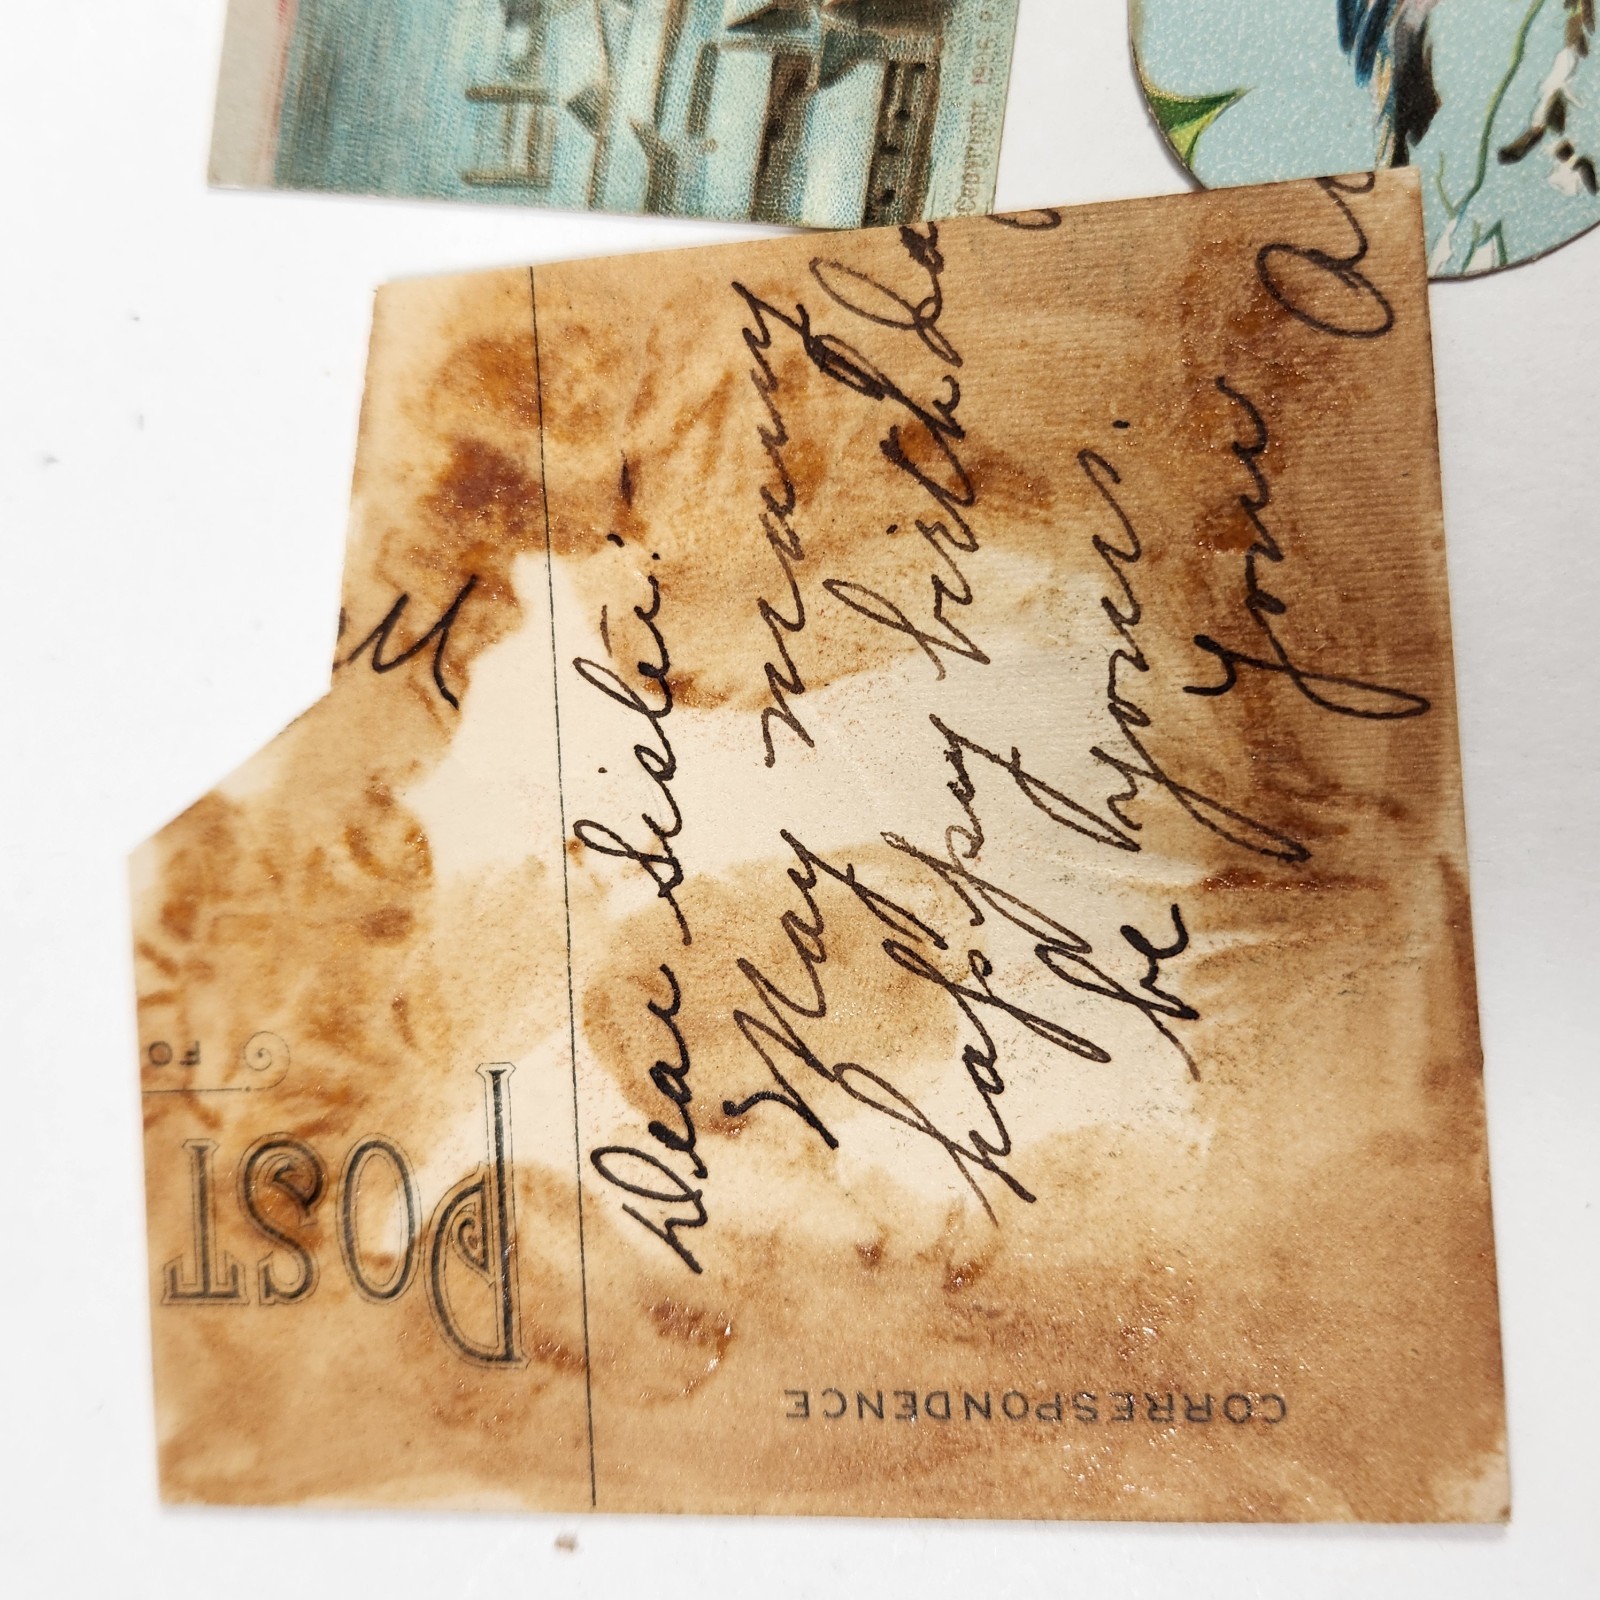 POST
FO
CORRESPONDENCE
Dear Sister:
May many
happy birthda
be yours.
Your
Copyright